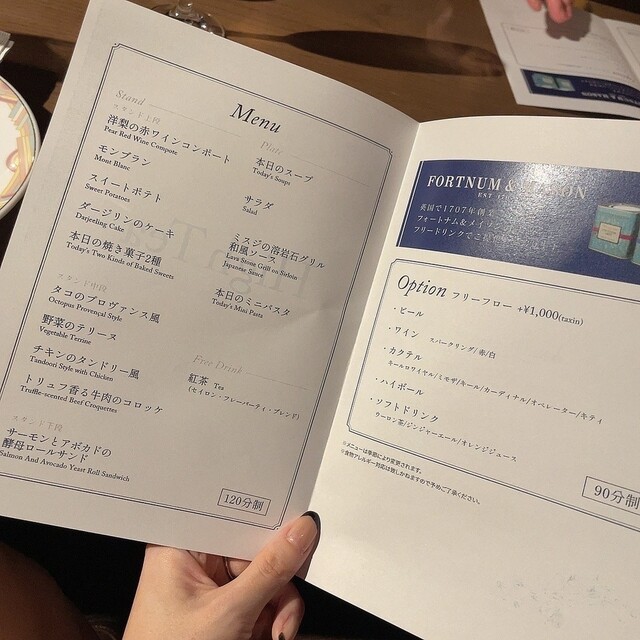 Menu
Stand
スタンド上段
洋梨の赤ワインコンポート
Pear Red Wine Compote
モンブラン
Mont Blanc
スイートポテト
Sweet Potatoes
ダージリンのケーキ
Darjeeling Cake
本日の焼き菓子2種
Today's Two Kinds of Baked Sweets
スタンド中段
タコのプロヴァンス風
Octopus Provençal Style
野菜のテリーヌ
Vegetable Terrine
チキンのタンドリー風
Tandoori Style with Chicken
トリュフ香る牛肉のコロッケ
Truffle-scented Beef Croquettes
スタンド下段
サーモンとアボカドの
酵母ロールサンド
Salmon And Avocado Yeast Roll Sandwich
Plate
本日のスープ
Today's Soups
サラダ
Salad
ミスジの溶岩石グリル
和風ソース
Lava Stone Grill on Sirloin
Japanese Sauce
本日のミニパスタ
Today's Mini Pasta
Free Drink
紅茶 Tea
(セイロン・フレーバーティ・ブレンド)
120分制
FORTNUM &
EST
英国で1707年創
フォートナム&メイ
フリードリンクでご
Option フリーフロー +¥1,000(taxin)
・ビール
・ワイン スパークリング/赤/白
・カクテル
キールロワイヤル/ミモザ/キール/カーディナル/オペレーター/キティ
・ハイボール
・ソフトドリンク
ウーロン茶/ジンジャーエール/オレンジジュース
90分制
※メニューは季節により変更されます。
※食物アレルギー対応は致しかねますので予めご了承ください。